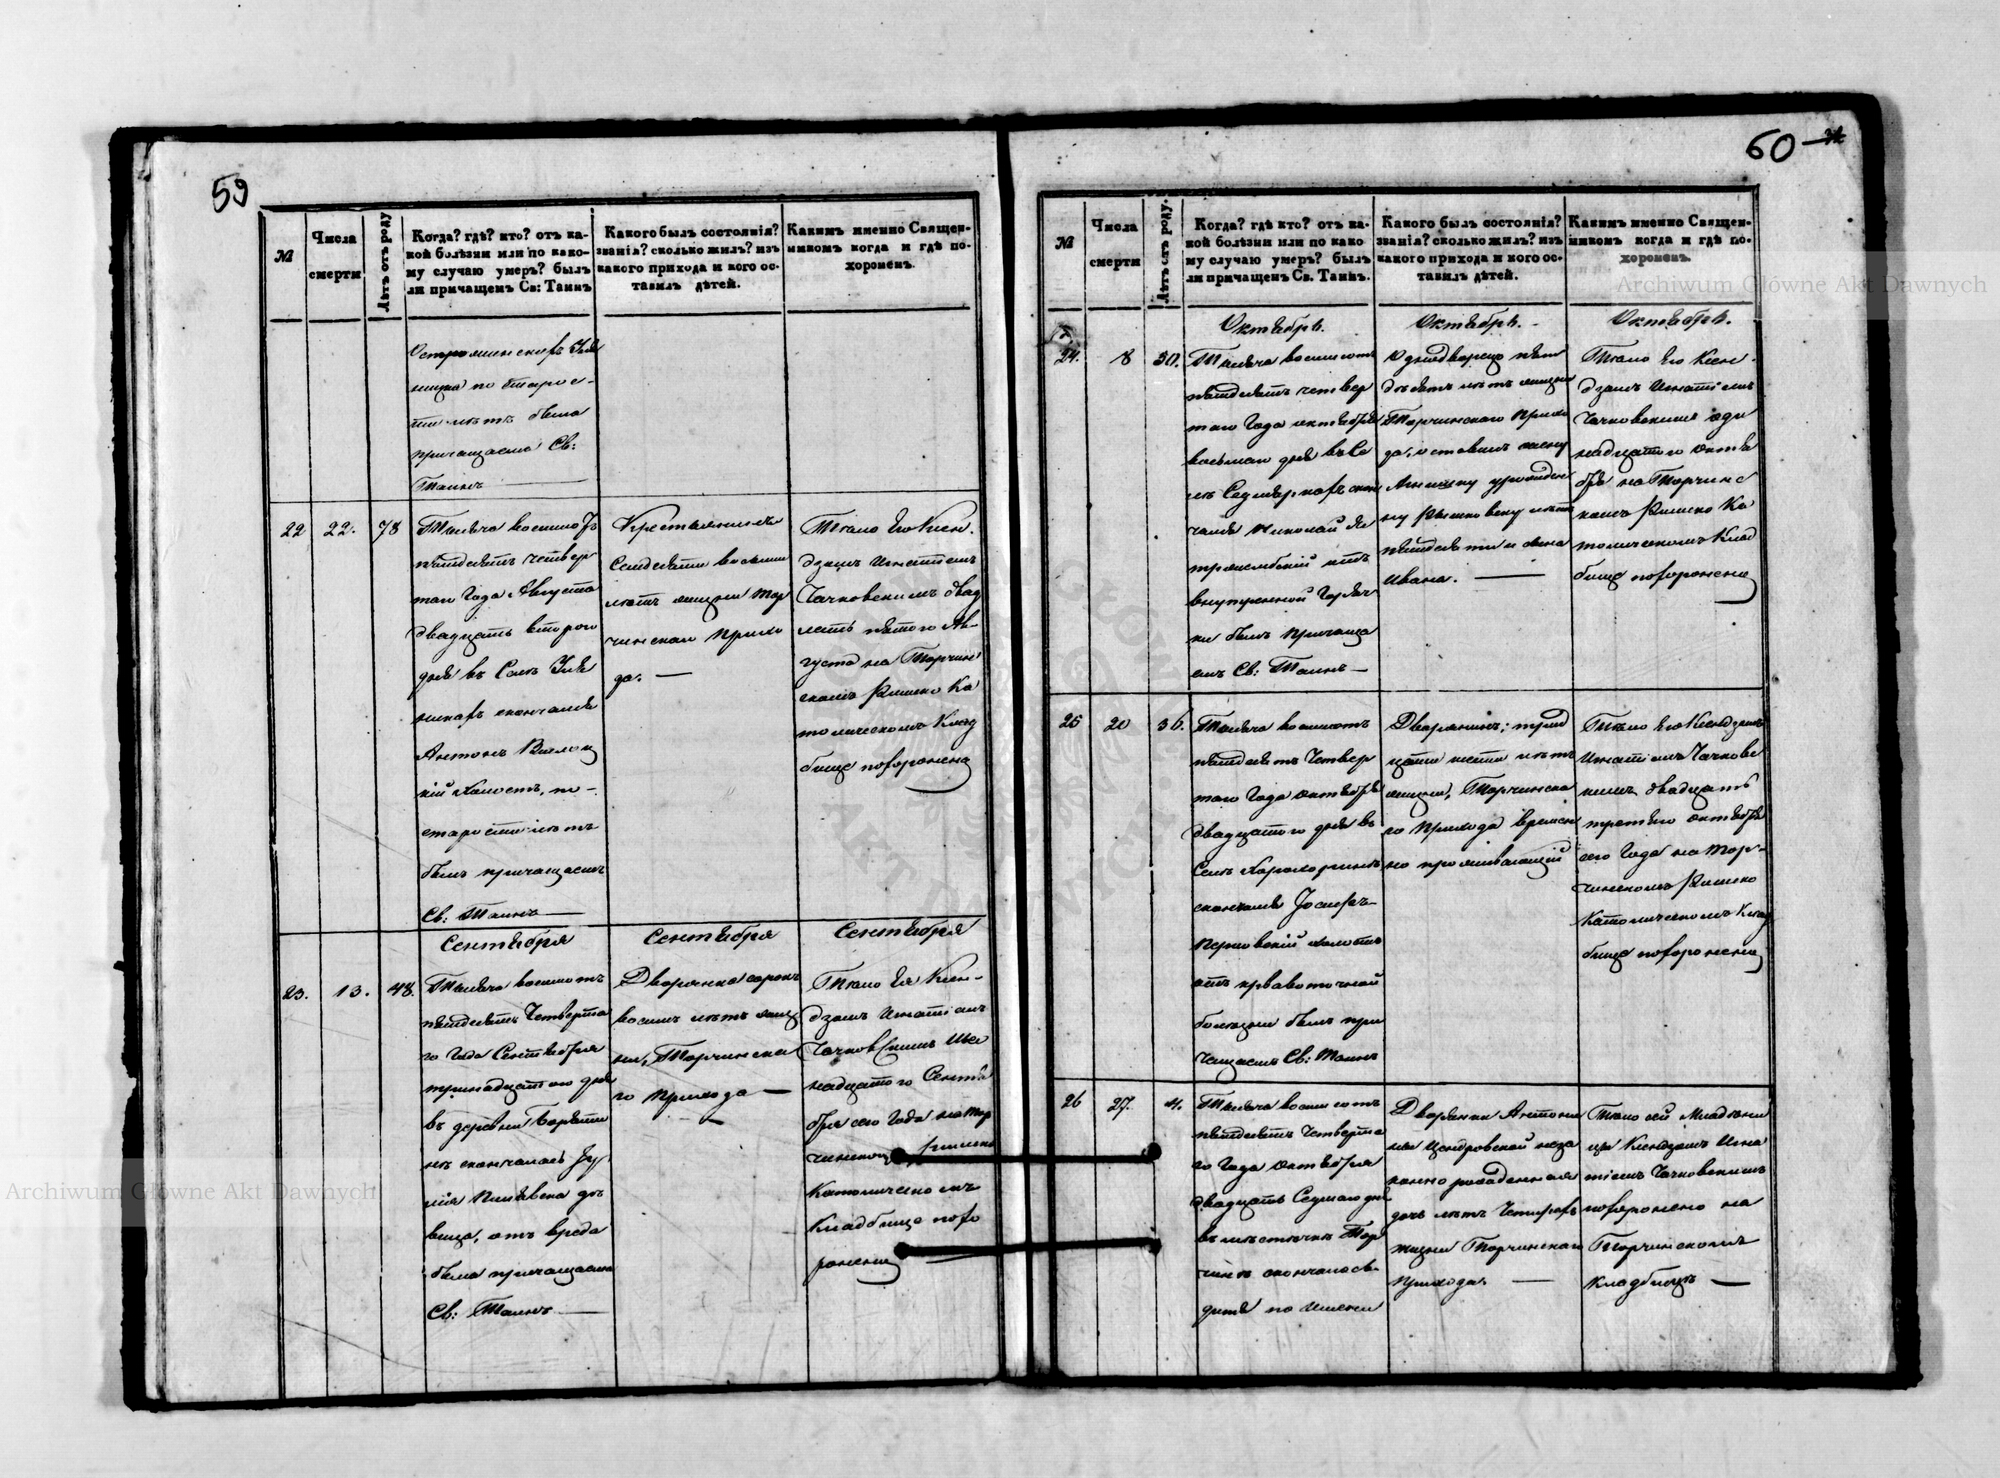 59
№
Числа
смерти
Лѣтъ отъ роду
Когда? гдѣ? кто? отъ ка-
кой болѣзни или по како-
му случаю умеръ? былъ
ли причащенъ Св: Таинъ
Какого былъ состоянія?
званія? сколько жилъ? изъ
какого прихода и кого ос-
тавилъ дѣтей.
Какимъ именно Священ-
никомъ когда и гдѣ по-
хороненъ.
по старос-
ти лѣтъ была
причащена Св:
Таинъ
22
22.
78
Тысяча восимсотъ
пятдесятъ четвер
таго Года Августа
двадцать второго
дня въ Селѣ
скончался
Антонъ
кій холостъ, по
старости лѣтъ
былъ причащенъ
Св: Таинъ
Крестьянинъ
Семдесятъ восимъ
лѣтъ жизни Тор
чинскаго прихо
да.
Тѣло Его Ксен-
дзомъ Игнатіемъ
Чачковскимъ двад
цать пятого Ав-
густа на Торчин
скомъ Римско Ка
толическомъ Клад
бище похоронено
Сентября
Сентября
Сентября
23.
13.
48.
Тысяча восимсотъ
пятдесятъ Четверта
го Года Сентября
тринадцатого дня
въ деревни
скончалась Ю
лія дѣ
вица, отъ вреда
была причащена
Св: Таинъ
Дворянка сорокъ
восимъ лѣтъ жиз
ни, Торчинска
го прихода
Тѣло Ея Ксен-
дзомъ Игнатіемъ
Чачковскимъ Шес
надцатого Сентя
бря сего Года на Тор
чинскомъ Римско
Католическомъ
Кладбище похо
ронено
60
№
Числа
смерти
Лѣтъ отъ роду.
Когда? гдѣ кто? отъ ка-
кой болѣзни или по како
му случаю умеръ? былъ
ли причащенъ Св. Таинъ.
Какого былъ состоянія?
званія? сколько жилъ? изъ
какого прихода и кого ос-
тавилъ дѣтей.
Какимъ именно Священ-
никомъ когда и гдѣ по-
хороненъ.
Октября.
Октября.
Октября.
24.
8
50.
Тысяча восимсотъ
пятдесятъ четвер
таго Года октября
восьмаго дня въ Се
лѣ скон
чался Николай
отъ
внутренной Горяч
ки былъ причаще
енъ Св: Таинъ
Однодворецъ пят
десятъ лѣтъ жизни
Торчинскаго Прихо
да, оставилъ жену
урожден
ну лѣтъ
пятдесяти и сына
Ивана.
Тѣло Его Ксен-
дзомъ Игнатіемъ
Чачковскимъ оди
надцатого Октя
бря на Торчинс
комъ Римско Ка
толическомъ Клад
бище похоронено
25
20
36.
Тысяча восимсотъ
пятдесятъ Четвер
таго Года октября
двадцатого дня въ
Селѣ
скончался Іосифъ
холостъ
отъ кровавоточной
болѣзни былъ при
чащенъ Св: Таинъ
Дворянинъ; трид
цати шести лѣтъ
жизни, Торчинска
го Прихода времен
но проживающій
Тѣло Его Ксендзомъ
Игнатіемъ Чачковс
кимъ двадцать
третьяго октября
сего Года на Тор-
чинскомъ Римско
Католическомъ Клад
бище похоронено
26
27.
4.
Тысяча восимсотъ
пятдесятъ Четверта
го Года октября
двадцать Седмаго дня
въ мѣстечкѣ Тор
чинѣ скончалось
дитя по имени
Дворянки Антони
ны неза
конно рожденная
дочь лѣтъ Четырехъ
жизни Торчинскаго
Прихода.
Тѣло сей Младени
цы Ксендзомъ Игна
тіемъ Чачковскимъ
похоронено на
Торчинскомъ
кладбищѣ
Archiwum Główne Akt Dawnych
Archiwum Główne Akt Dawnych